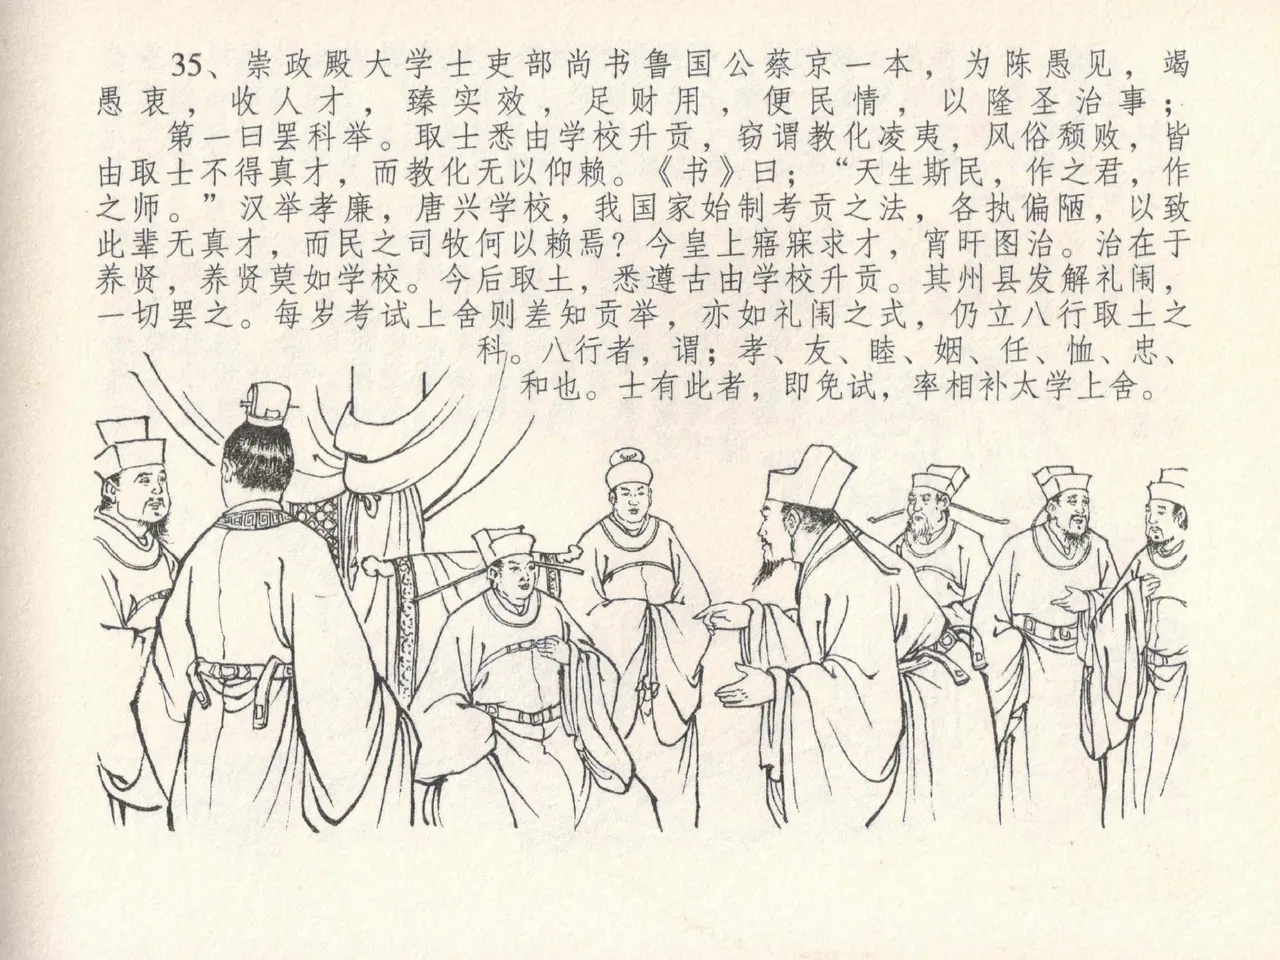 35、崇政殿大学士吏部尚书鲁国公蔡京一本，为陈愚见，竭
愚衷，收人才，臻实效，足财用，便民情，以隆圣治事；
第一曰罢科举。取士悉由学校升贡，窃谓教化凌夷，风俗颓败，皆
由取士不得真才，而教化无以仰赖。《书》曰；“天生斯民，作之君，作
之师。”汉举孝廉，唐兴学校，我国家始制考贡之法，各执偏陋，以致
此辈无真才，而民之司牧何以赖焉？今皇上寤寐求才，宵旰图治。治在于
养贤，养贤莫如学校。今后取士，悉遵古由学校升贡。其州县发解礼闱，
一切罢之。每岁考试上舍则差知贡举，亦如礼闱之式，仍立八行取士之
科。八行者，谓；孝、友、睦、姻、任、恤、忠、
和也。士有此者，即免试，率相补太学上舍。